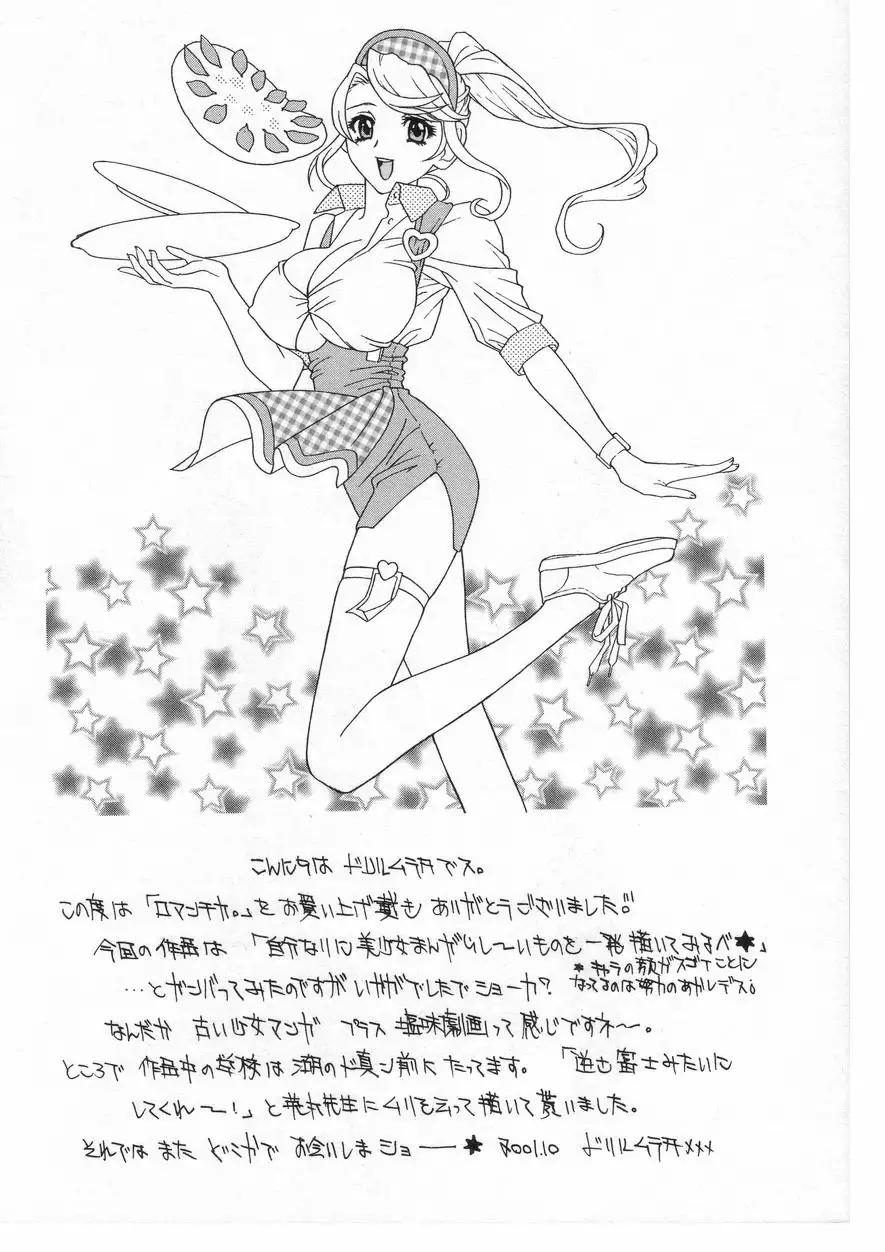 こんにちは ドリルムラタでス。
この度は「ロマンチカ。」をお買い上げ戴き ありがとうございました!!
今回の作品は 「自分なりに美少女まんがらし〜いものを一発描いてみるべ★」
*キャラの顔がスゴイことに
…とガンバってみたのですが いかがでしたでショーカ?
なってるのは努力のあかしデス。
なんだか 古い少女マンガ プラス 塩味劇画って感じですネ〜。
ところで 作品中の学校は湖のド真ン前にたってます。「逆さ富士みたいに
してくれ〜!」と荒木先生にムリを云って描いて貰いました。
それでは また どこかで お会いしまショ—★ 2001.10 ドリルムラタ×××